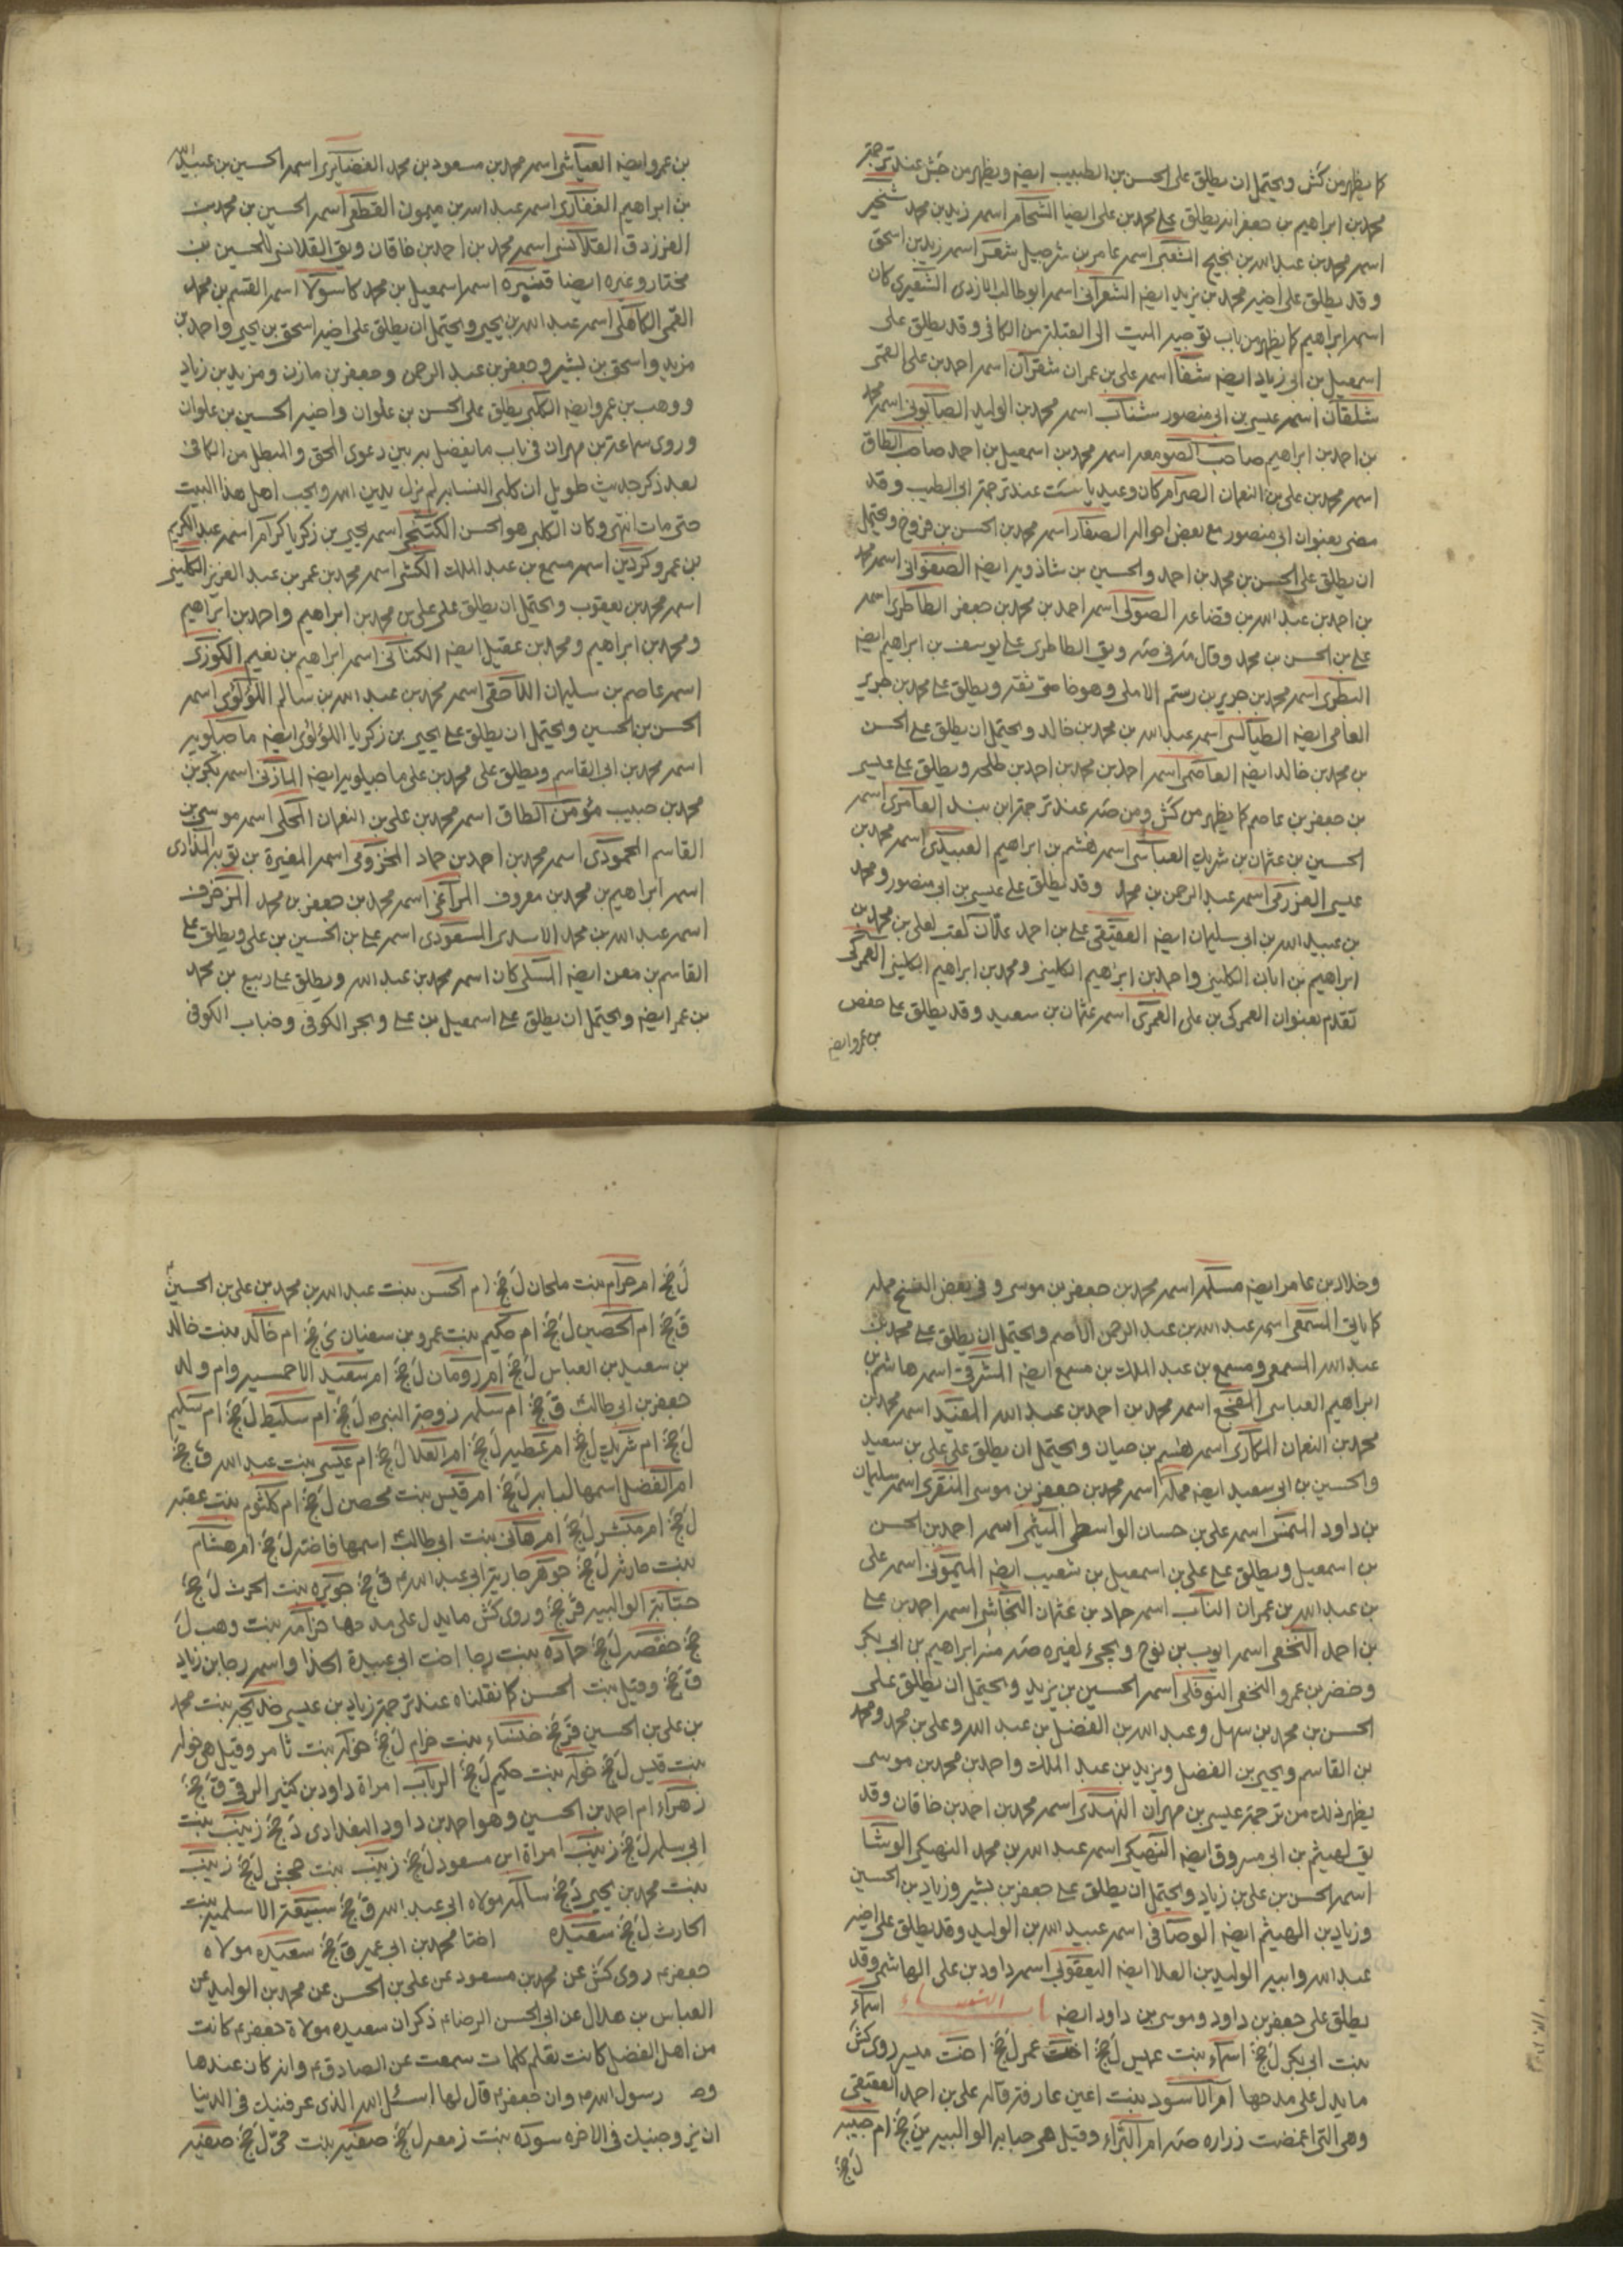 كما يظهر من كش ويحتمل ان يطلق على الحسن بن الطبيب ايضه ويظهر من جش عند ترجمة
محمد بن ابراهيم بن جعفر انه يطلق على محمد بن على ايضا الشحام اسمه زيد بن محمد شخير
اسمه محمد بن عبد الله بن نجيح الشعبى اسمه عامر بن شرحبيل شعر اسمه زيد بن اسحق
وقد يطلق على اخيه محمد بن يزيد ايضه الشعرانى اسمه ابو طالب الازدى الشعيرى كان
اسمه ابراهيم كما يظهر من باب توجيه الميت الى القبلة من الكافى وقد يطلق على
اسمعيل بن ابى زياد ايضه شفا اسمه على بن عمران شقران اسمه احمد بن على القمى
شلقان اسمه عيسى بن ابى منصور شناب اسمه محمد بن الوليد الصابونى اسمه محمد
بن احمد بن ابراهيم صاحب الصومعه اسمه محمد بن اسمعيل بن احمد صاحب الطاق
اسمه محمد بن على بن النعمان الصرام كان وعيد ياست عند ترجمة ابى الطيب وقد
مضى بعنوان ابى منصور مع بعض احواله الصفار اسمه محمد بن الحسن بن فروخ ويحتمل
ان يطلق على الحسن بن محمد بن احمد والحسين بن شاذويه ايضه الصفوانى اسمه محمد
بن احمد بن عبد الله بن قضاعه الصولى اسمه احمد بن محمد بن جعفر الطاطرى اسمه
على بن الحسن ب محمد وقال مر في صه ويق الطاطرى على يوسف بن ابراهيم ايضه
الطبرى اسمه محمد بن جرير بن رستم الاملى وهو خاصى ثقة ويطلق على محمد بن جرير
العامى ايضه الطيالسى اسمه عبد الله بن محمد بن خالد ويحتمل ان يطلق على الحسن
بن محمد بن خالد ايضه العاصمى اسمه احمد بن محمد بن احمد بن طلحه ويطلق على عيسى
بن جعفر بن عاصم كما يظهر من كش ومن صه عند ترجمة ابن بند العامرى اسمه
الحسين بن عثمان بن شريك العباسى اسمه هشم بن ابراهيم العبيدى اسمه محمد بن
عيسى العزرمى اسمه عبد الرحمن بن محمد وقد يطلق على عيسى بن ابى منصور ومحمد
بن عبيد الله بن ابى سليمان ايضه العقيقى على بن احمد علان لقب لعلى بن محمد بن
ابراهيم بن ابان الكلينى واحمد بن ابراهيم الكلينى ومحمد بن ابراهيم الكلينى العمركى
تقدم بعنوان العمركى بن على العمرى اسمه عثمان بن سعيد وقد يطلق على حفص
بن عمرو ايضه
بن عمرو ايضه العياشى اسمه محمد بن مسعود بن محمد الغضايرى اسمه الحسين بن عبيد الله
بن ابراهيم الغفارى اسمه عبد الله بن ميمون القطعى اسمه الحسين بن محمد بن
الفرزدق القلانسى اسمه محمد بن احمد بن خاقان ويق القلانسى للحسين بن
مختار وغيره ايضا قنبره اسمه اسمعيل بن محمد كاسولا اسمه القسم بن محمد
القمى الكاهلى اسمه عبد الله بن يحيى ويحتمل ان يطلق على اخيه اسحق بن يحيى واحمد بن
مزيد واسحق بن بشير وجعفر بن عبد الرحمن وجعفر بن مازن ومزيد بن زياد
ووهب بن عمرو ايضه الكلبى يطلق على الحسن بن علوان واخيه الحسين بن علوان
وروى سماعة بن مهران فى باب ما يفصل به بين دعوى المحق والمبطل من الكافى
بعد ذكر حديث طويل ان كلبى النسابه لم يزل يدين الله ويحب اهل هذا البيت
حتى مات انتهى وكان الكلبى هو الحسن الكتنجى اسمه يحيى بن زكريا كرام اسمه عبد الكريم
بن عمرو كردين اسمه مسمع بن عبد الملك الكشى اسمه محمد بن عمر بن عبد العزيز الكلينى
اسمه محمد بن يعقوب ويحتمل ان يطلق على على بن محمد بن ابراهيم واحمد بن ابراهيم
ومحمد بن ابراهيم ومحمد بن عقيل ايضه الكنانى اسمه ابراهيم بن نعيم الكوزى
اسمه عاصم بن سليمان اللاحقى اسمه محمد بن عبد الله بن سالم اللؤلؤى اسمه
الحسن بن الحسين ويحتمل ان يطلق على يحيى بن زكريا اللؤلؤى ايضه ماجيلويه
اسمه محمد بن ابى القاسم ويطلق على محمد بن على ماجيلويه ايضه المازنى اسمه بكر بن
محمد بن حبيب مؤمن الطاق اسمه محمد بن على بن النعمان المحلى اسمه موسى بن
القاسم المحمودى اسمه محمد بن احمد بن حماد المخزومى اسمه المغيرة بن توبه المذارى
اسمه ابراهيم بن محمد بن معروف المراغى اسمه محمد بن جعفر بن محمد المزخرف
اسمه عبد الله بن محمد الاسدى المسعودى اسمه على بن الحسين بن على ويطلق على
القاسم بن معن ايضه المسلى كان اسمه محمد بن عبد الله ويطلق على ربيع بن محمد
بن عمر ايضه ويحتمل ان يطلق على اسمعيل بن على وبحر الكوفى وخباب الكوفى
وخلاد بن عامر ايضه مسكه اسمه محمد بن جعفر بن موسى وفى بعض النسخ مملة
كما ياتى المسمعى اسمه عبد الله بن عبد الرحمن الاصم ويحتمل ان يطلق على محمد بن
عبد الله المسمعى ومسمع بن عبد الملك بن مسمع ايضه المشرقى اسمه هاشم بن
ابراهيم العباسى المفجع اسمه محمد بن احمد بن عبد الله المفيد اسمه محمد بن
محمد بن النعمان المكارى اسمه هشيم بن حيان ويحتمل ان يطلق على على بن سعيد
والحسين بن ابى سعيد ايضه مملة اسمه محمد بن جعفر بن موسى المنقرى اسمه سليمان
بن داود المنمس اسمه على بن حسان الواسطى الميثمى اسمه احمد بن الحسن
بن اسمعيل ويطلق على على بن اسمعيل بن شعيب ايضه الميمونى اسمه على
بن عبد الله بن عمران الناب اسمه حماد بن عثمان النجاشى اسمه احمد بن على
بن احمد النخعى اسمه ايوب بن نوح ويجىء لغيره صه منه ابراهيم بن ابى بكر
وخضر بن عمرو النخعى النوفلى اسمه الحسين بن يزيد ويحتمل ان يطلق على
الحسن بن محمد بن سهل وعبد الله بن الفضل بن عبد الله وعلى بن محمد ومحمد
بن القاسم ويحيى بن الفضل ويزيد بن عبد الملك واحمد بن محمد بن موسى
يظهر ذلك من ترجمة عيسى بن مهران النهدى اسمه محمد بن احمد بن خاقان وقد
يق لهيثم بن ابى مسروق ايضه النهيكى اسمه عبد الله بن محمد النهيكى الوشا
اسمه الحسن بن على بن زياد ويحتمل ان يطلق على جعفر بن بشير وزياد بن الحسين
وزياد بن الهيثم ايضه الوصافى اسمه عبيد الله بن الوليد وقد يطلق على اخيه
عبد الله وابيه الوليد بن العلا ايضه اليعقوبى اسمه داود بن على الهاشمى وقد
يطلق على جعفر بن داود وموسى بن داود ايضه باب النساء اسماء
بنت ابى بكر ل جخ اسماء بنت عميس ل جخ اخت عمر ل جخ اخت ميسر روى كش
ما يدل على مدحها ام الاسود بنت اعين عارفة قاله على بن احمد العقيقى
وهى التى اغمضت زراره صه ام البراء وقيل هى حبابه الوالبيه ين جخ ام حبيبه
ل جخ
ل جخ ام حرام بنت ملحان ل جخ ام الحسن بنت عبد الله بن محمد بن على بن الحسين
ق جخ ام الحصين ل جخ ام حكيم بنت عمرو بن سفيان ى جخ ام خالد بنت خالد
بن سعيد بن العباس ل جخ ام رومان ل جخ ام سعيد الاحمسيه وام ولد
جعفر بن ابى طالب ق جخ ام سلمه زوجة النبى ص ل جخ ام سليط ل جخ ام سليم
ل جخ ام شريك ل جخ ام عطيه ل جخ ام العلا ل جخ ام عيسى بنت عبد الله ق جخ
ام الفضل اسمها لبابه ل جخ ام قيس بنت محصن ل جخ ام كلثوم بنت عقبه
ل جخ ام مبشر ل جخ ام هانى بنت ابى طالب اسمها فاخته ل جخ ام هشام
بنت حارثه ل جخ جوهر جارية ابى عبد الله ع ق جخ جويره بنت الحرث ل جخ
حبابة الوالبيه قر جخ وروى كش ما يدل على مدحها حزامه بنت وهب ل
جخ حفصه ل جخ حماده بنت رجا اخت ابى عبيدة الحذا واسمه رجا بن زياد
ق جخ وقيل بنت الحسن كما نقلناه عند ترجمة زياد بن عيسى خديجه بنت محمد
بن على بن الحسين قر جخ خنساء بنت خزام ل جخ خوله بنت ثامر وقيل هى خوله
بنت قيس ل جخ خوله بنت حكيم ل جخ الرباب امراة داود بن كثير الرقى ق جخ
زهراء ام احمد بن الحسين وهو احمد بن داود البغدادى د جخ زينب بنت
ابى سلمه ل جخ زينب امراة ابن مسعود ل جخ زينب بنت جحش ل جخ زينب
بنت محمد بن يحيى د جخ سالمه مولاه ابى عبد الله ق جخ سبيعة الاسلميه بنت
الحارث ل جخ سعيده اختا محمد بن ابى عمير ق جخ سعيده مولاه
جعفر ع روى كش عن محمد بن مسعود عن على بن الحسن عن محمد بن الوليد عن
العباس بن هلال عن ابى الحسن الرضا ع ذكر ان سعيده مولاة جعفر ع كانت
من اهل الفضل كانت تعلم كلمات سمعت عن الصادق ع وانه كان عندها
وصه رسول الله ص وان جعفر ع قال لها اسئل الله الذى عرفنيك فى الدنيا
ان يزوجنيك فى الاخره سوده بنت زمعه ل جخ صفيه بنت حى ل جخ صفيه